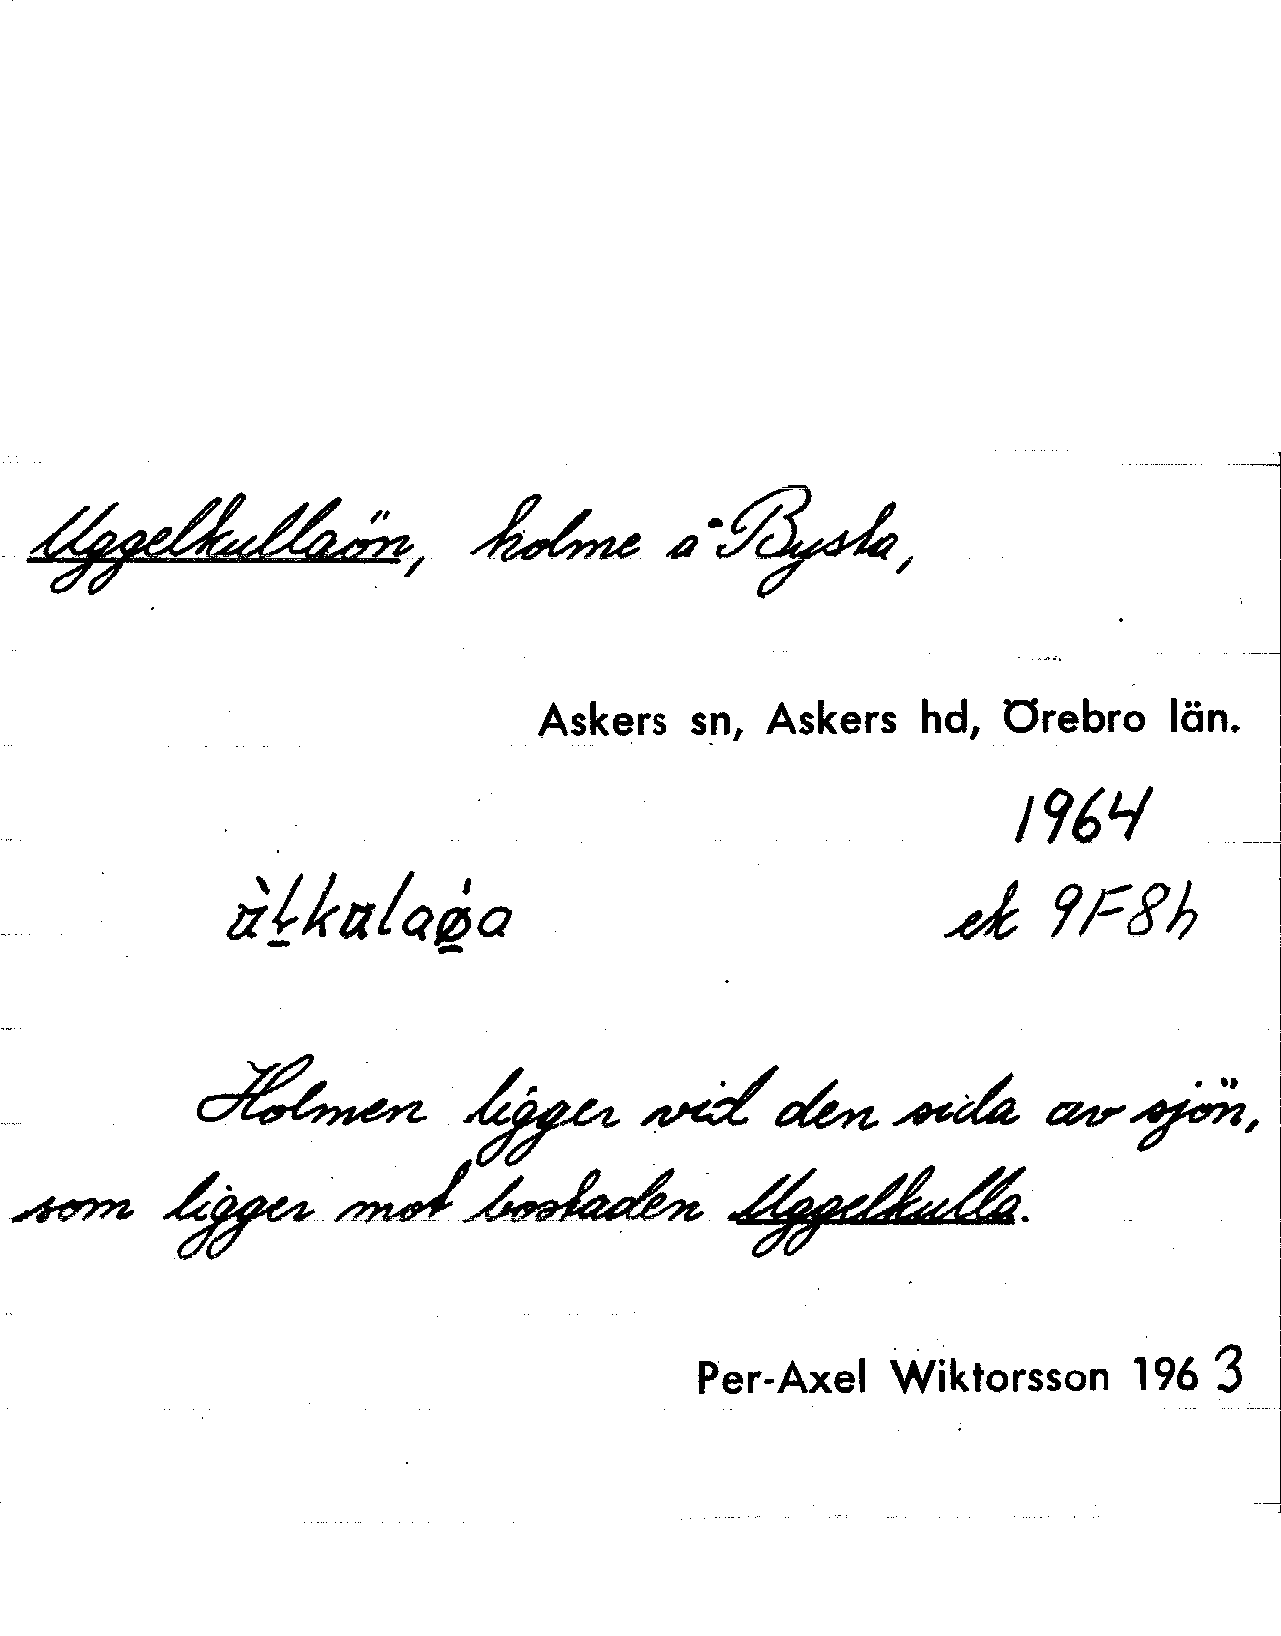 Uggelkullaön, holme å Bysta,
Askers sn, Askers hd, Örebro län.
1964
ek 9F8h
Holmen ligger vid den sida av sjön,
som ligger mot bostaden Uggelkulla.
Per-Axel Wiktorsson 1963